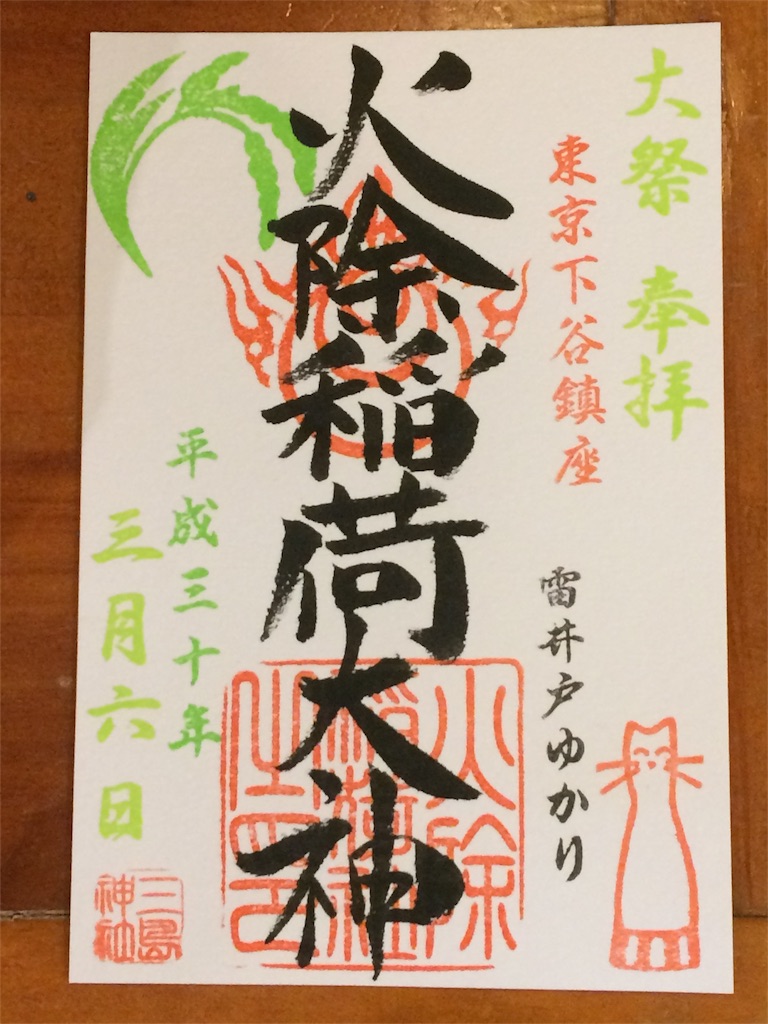 大祭 奉拝
東京下谷鎮座
雷井戸ゆかり
火除稲荷大神
火除稲荷神社之印
平成三十年
三月六日
三島神社